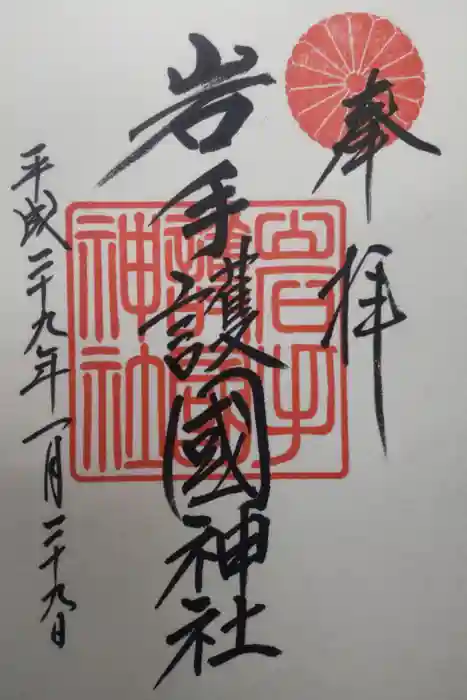 奉拝
岩手護國神社
平成二十九年一月二十九日
岩手
護國
神社